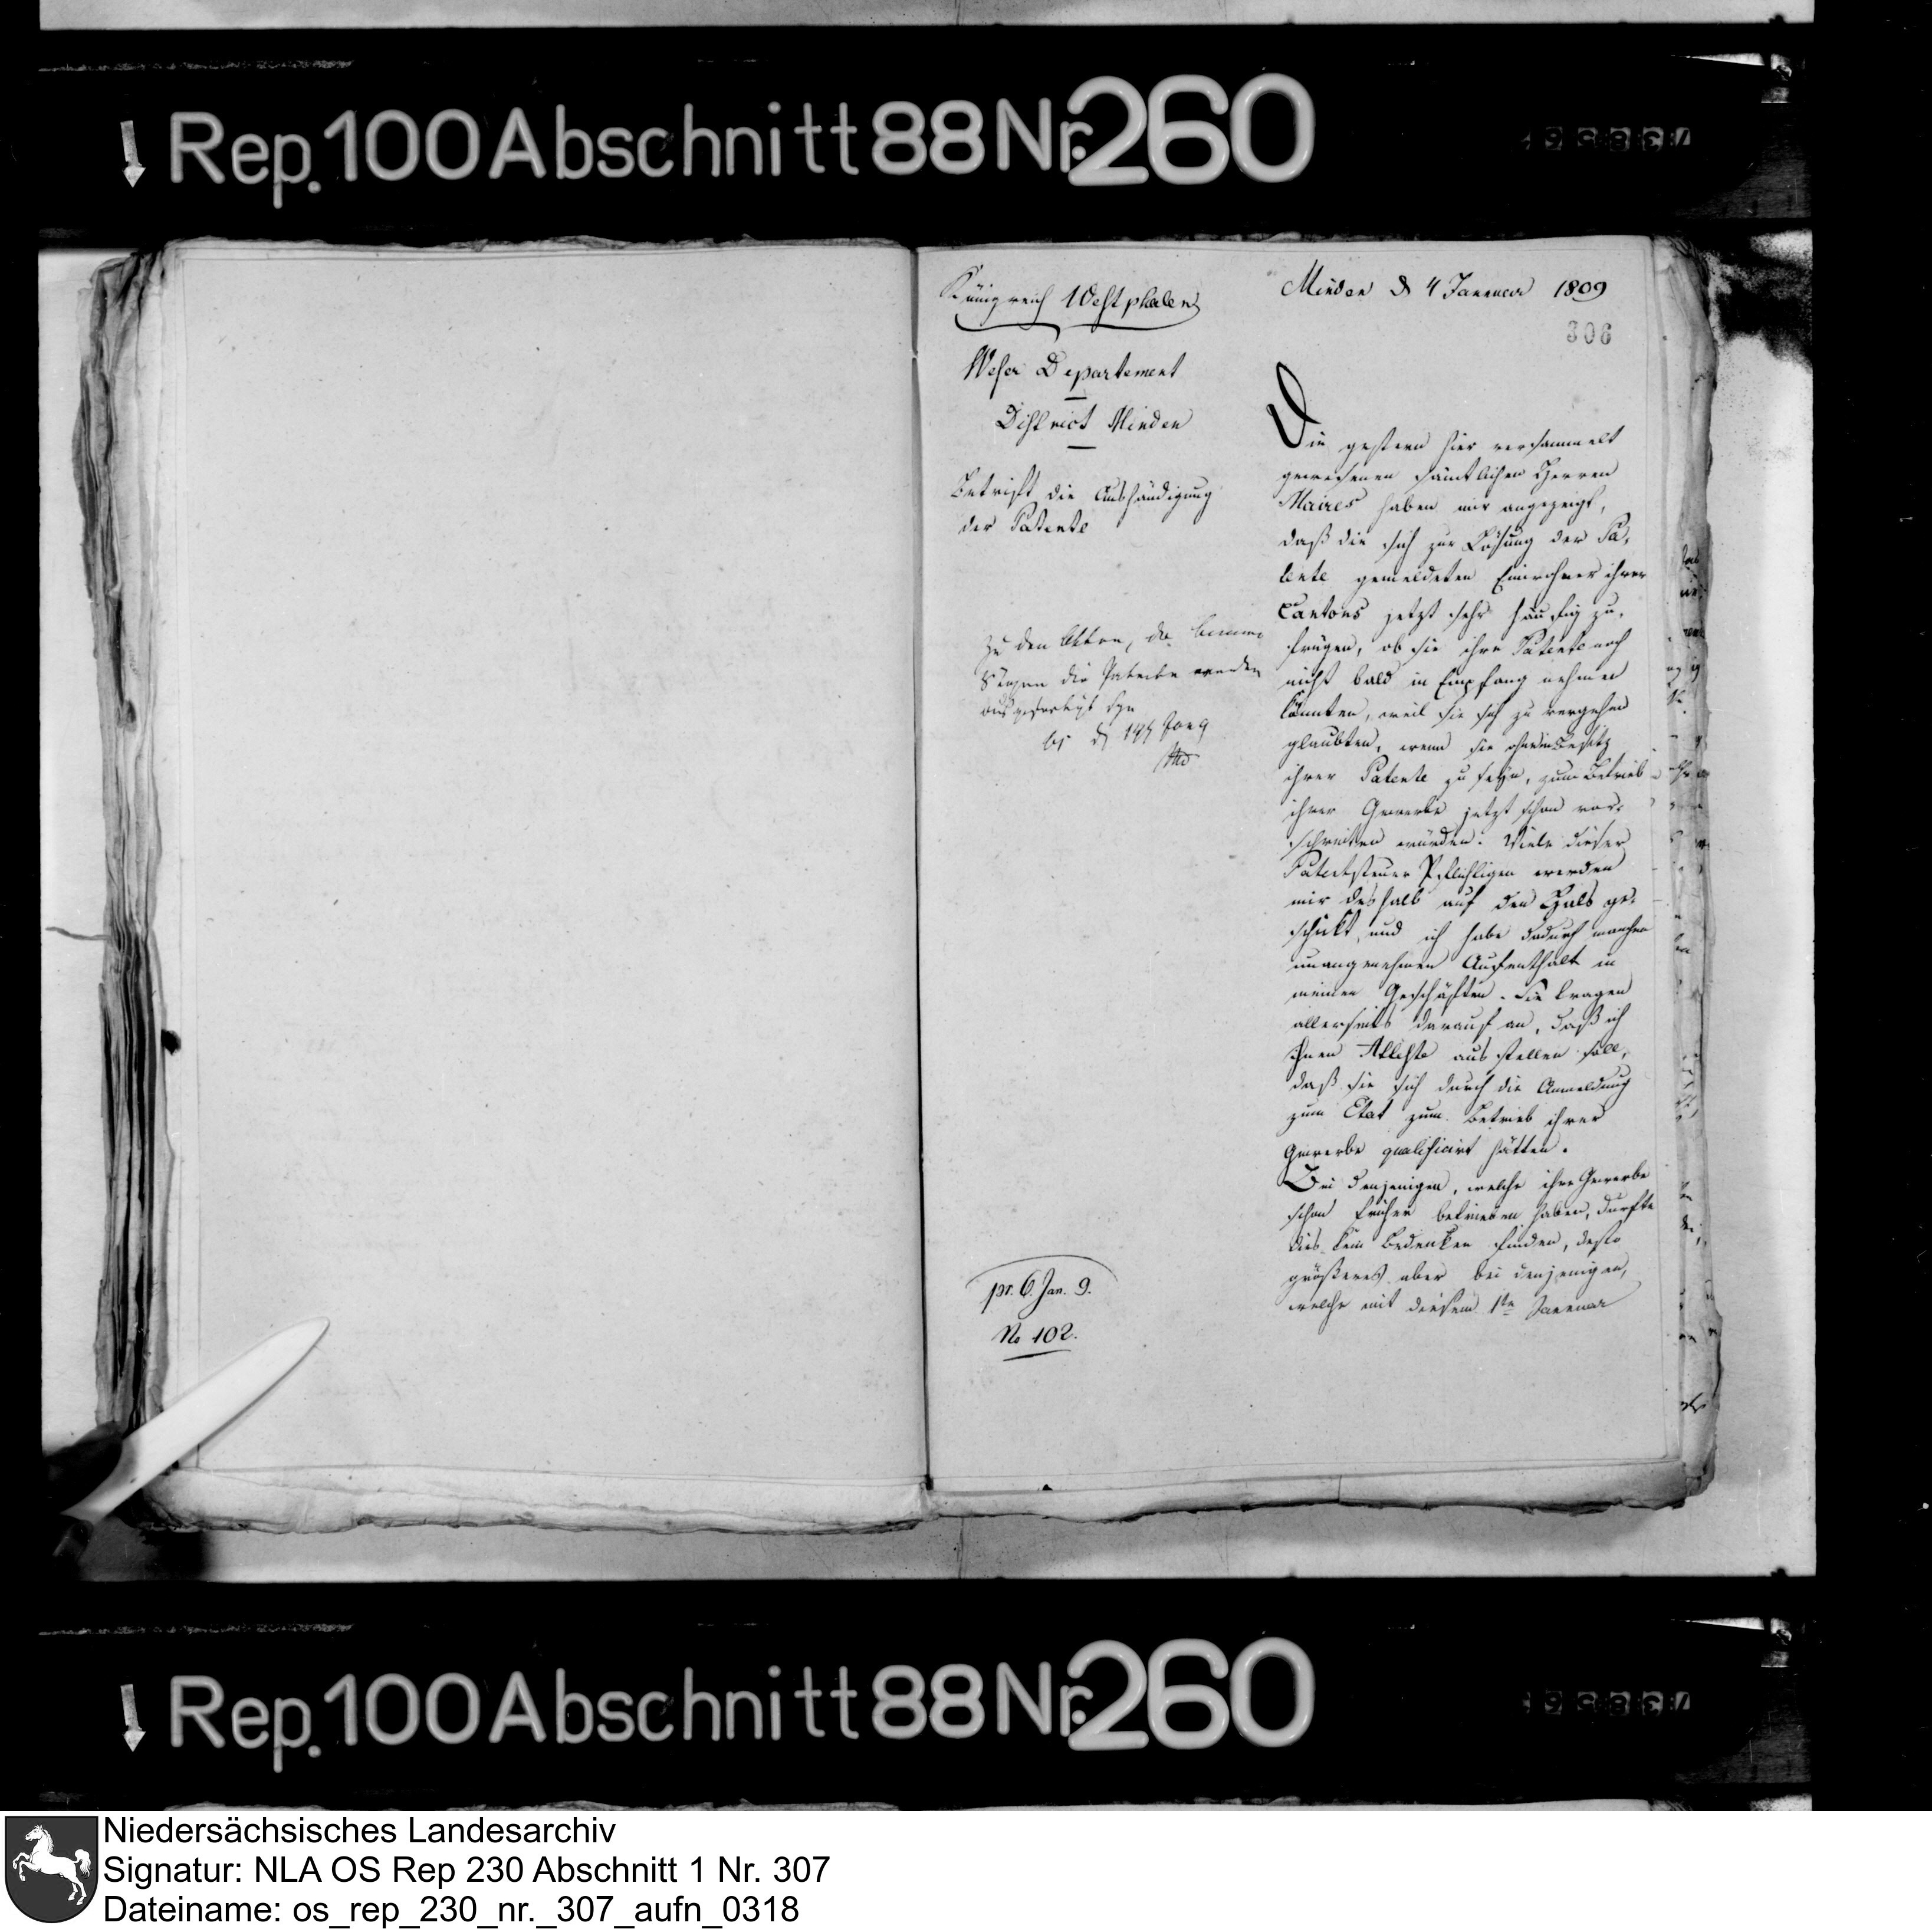 Rep. 100 Abschnitt 88 Nr. 260
Königreich Westphalen
Weser Departement
District Minden
Betrift die Aushändigung
der Patente
Zu den Akten, da binnen
die Patente werden
ausgefertigt seyn
d 14 Jan 9
pr. 6. Jan. 9.
No 102.
Minden d 4 Januar 1809
306
Die gestern hier versammelt
gewesenen sämtlichen Herren
Maires haben mir angezeigt,
daß die sich zur Lösung der Pa-
tente gemeldeten Einwohner ihrer
Cantons jetzt sehr häufig zu-
frügen, ob sie ihre Patente noch
nicht bald in Empfang nehmen
könnten, weil sie sich zu vergehen
glaubten, wenn sie ohne im Besitz
ihrer Patente zu seyn, zum Betrieb
ihrer Gewerbe jetzt schon vor-
schreiten würden. Viele dieser
Patentsteuer Pflichtigen werden
mir deshalb auf den Hals ge-
schickt, und ich habe dadurch manchen
unangenehmen Aufenthalt in
meinen Geschäften. Sie tragen
allerseits darauf an, daß ich
Ihnen Atteste ausstellen soll,
daß sie sich durch die Anmeldung
zum Etat zum Betrieb ihrer
Gewerbe qualificirt hätten.
Bei denjenigen, welche ihre Gewerbe
schon früher betrieben haben, durfte
dies kein Bedenken finden, desto
größeres aber bei denjenigen,
welche mit diesem 1ten Januar
Rep. 100 Abschnitt 88 Nr. 260
Niedersächsisches Landesarchiv
Signatur: NLA OS Rep 230 Abschnitt 1 Nr. 307
Dateiname: os_rep_230_nr._307_aufn_0318